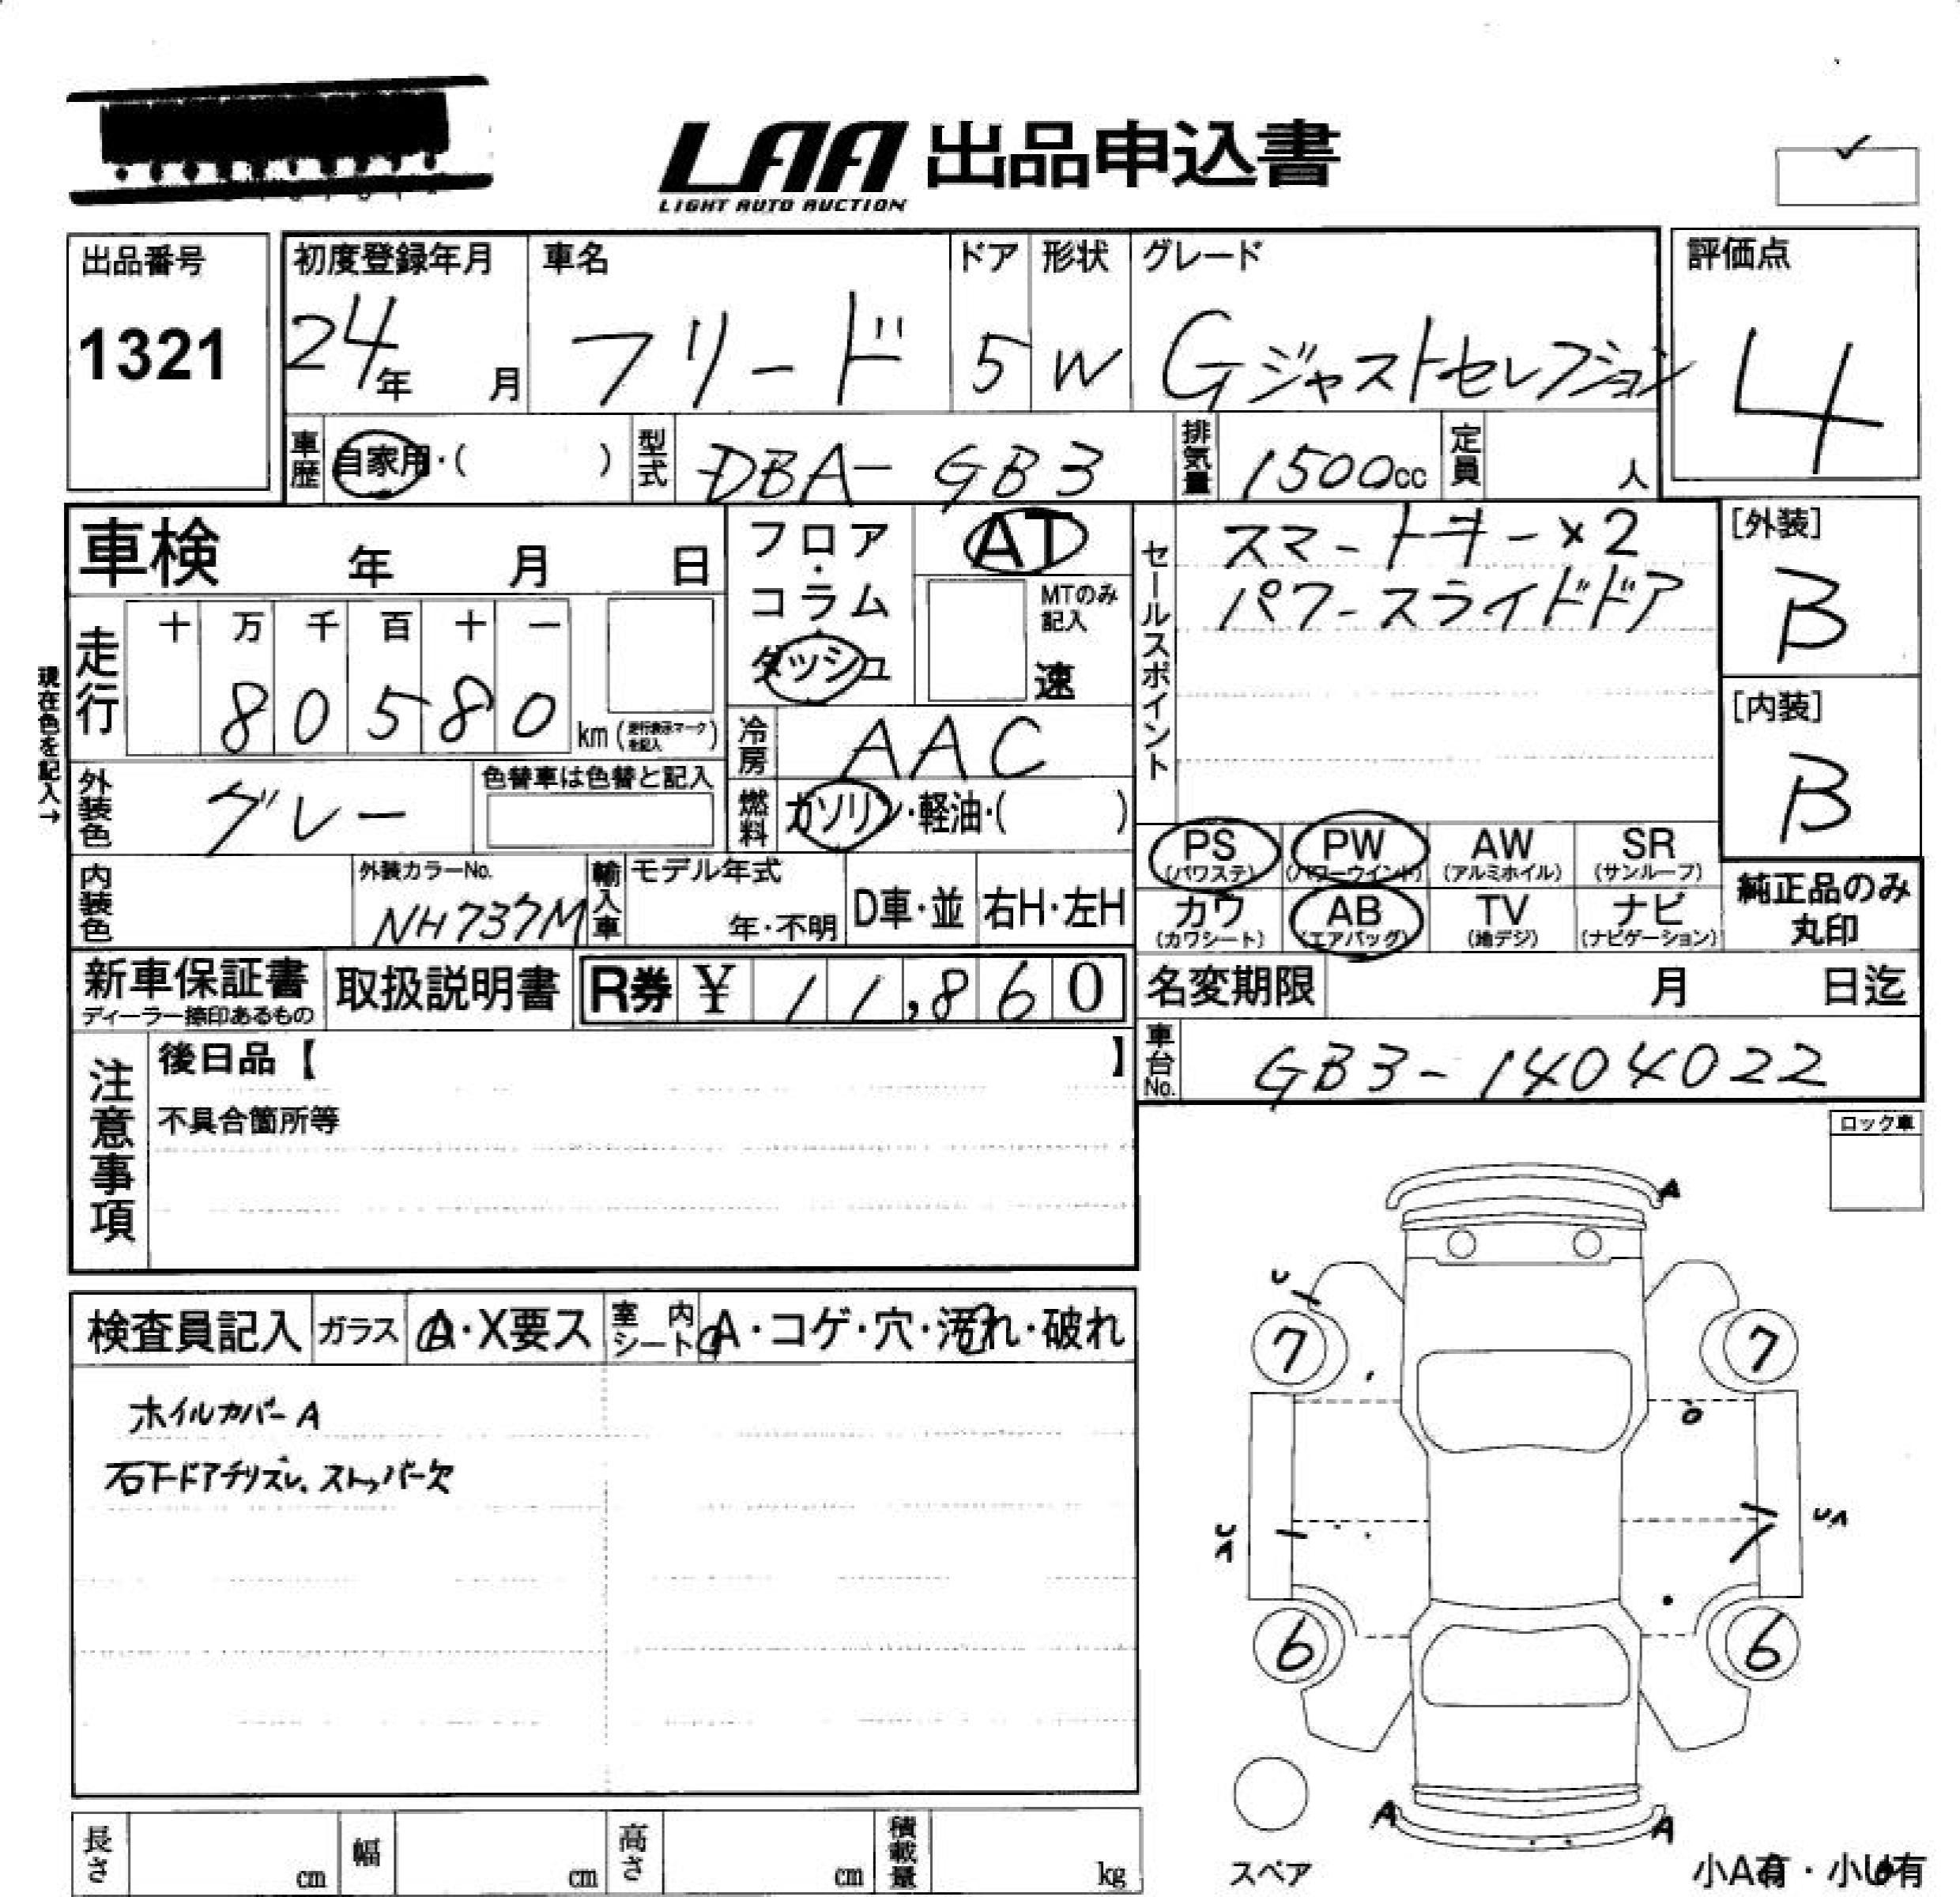 LAA 出品申込書
LIGHT AUTO AUCTION
出品番号
1321
初度登録年月
24年 月
車名
フリード
ドア
5
形状
W
グレード
Gジャストセレクション
評価点
4
車歴 自家用・( )
型式 DBA-GB3
排気量 1500cc
定員 人
車検 年 月 日
フロア・コラム・ダッシュ
AT
MTのみ記入
速
セールスポイント
スマートキー×2
パワースライドドア
[外装]
B
[内装]
B
現在色を記入→
走行
十 万 千 百 十 一
8 0 5 8 0 km (走行表示マークを記入)
冷房 AAC
外装色 グレー
色替車は色替と記入
燃料 ガソリン・軽油・( )
PS (パワステ)
PW (パワーウインド)
AW (アルミホイル)
SR (サンルーフ)
カワ (カワシート)
AB (エアバッグ)
TV (地デジ)
ナビ (ナビゲーション)
純正品のみ丸印
内装色
外装カラーNo.
NH737M
輸入車
モデル年式
年・不明
D車・並
右H・左H
新車保証書
ディーラー捺印あるもの
取扱説明書
R券 ¥ 11,860
名変期限 月 日迄
車台No. GB3-1404022
注意事項
後日品【 】
不具合箇所等
ロック車
検査員記入
ガラス A・X要ス
室内シート A・コゲ・穴・汚れ・破れ
ホイルカバーA
右Fドアチリズレ、ストッパー欠
A
U
7 7
UA
UA
6 6
A A
スペア
小A有・小U有
長さ cm
幅 cm
高さ cm
積載量 kg